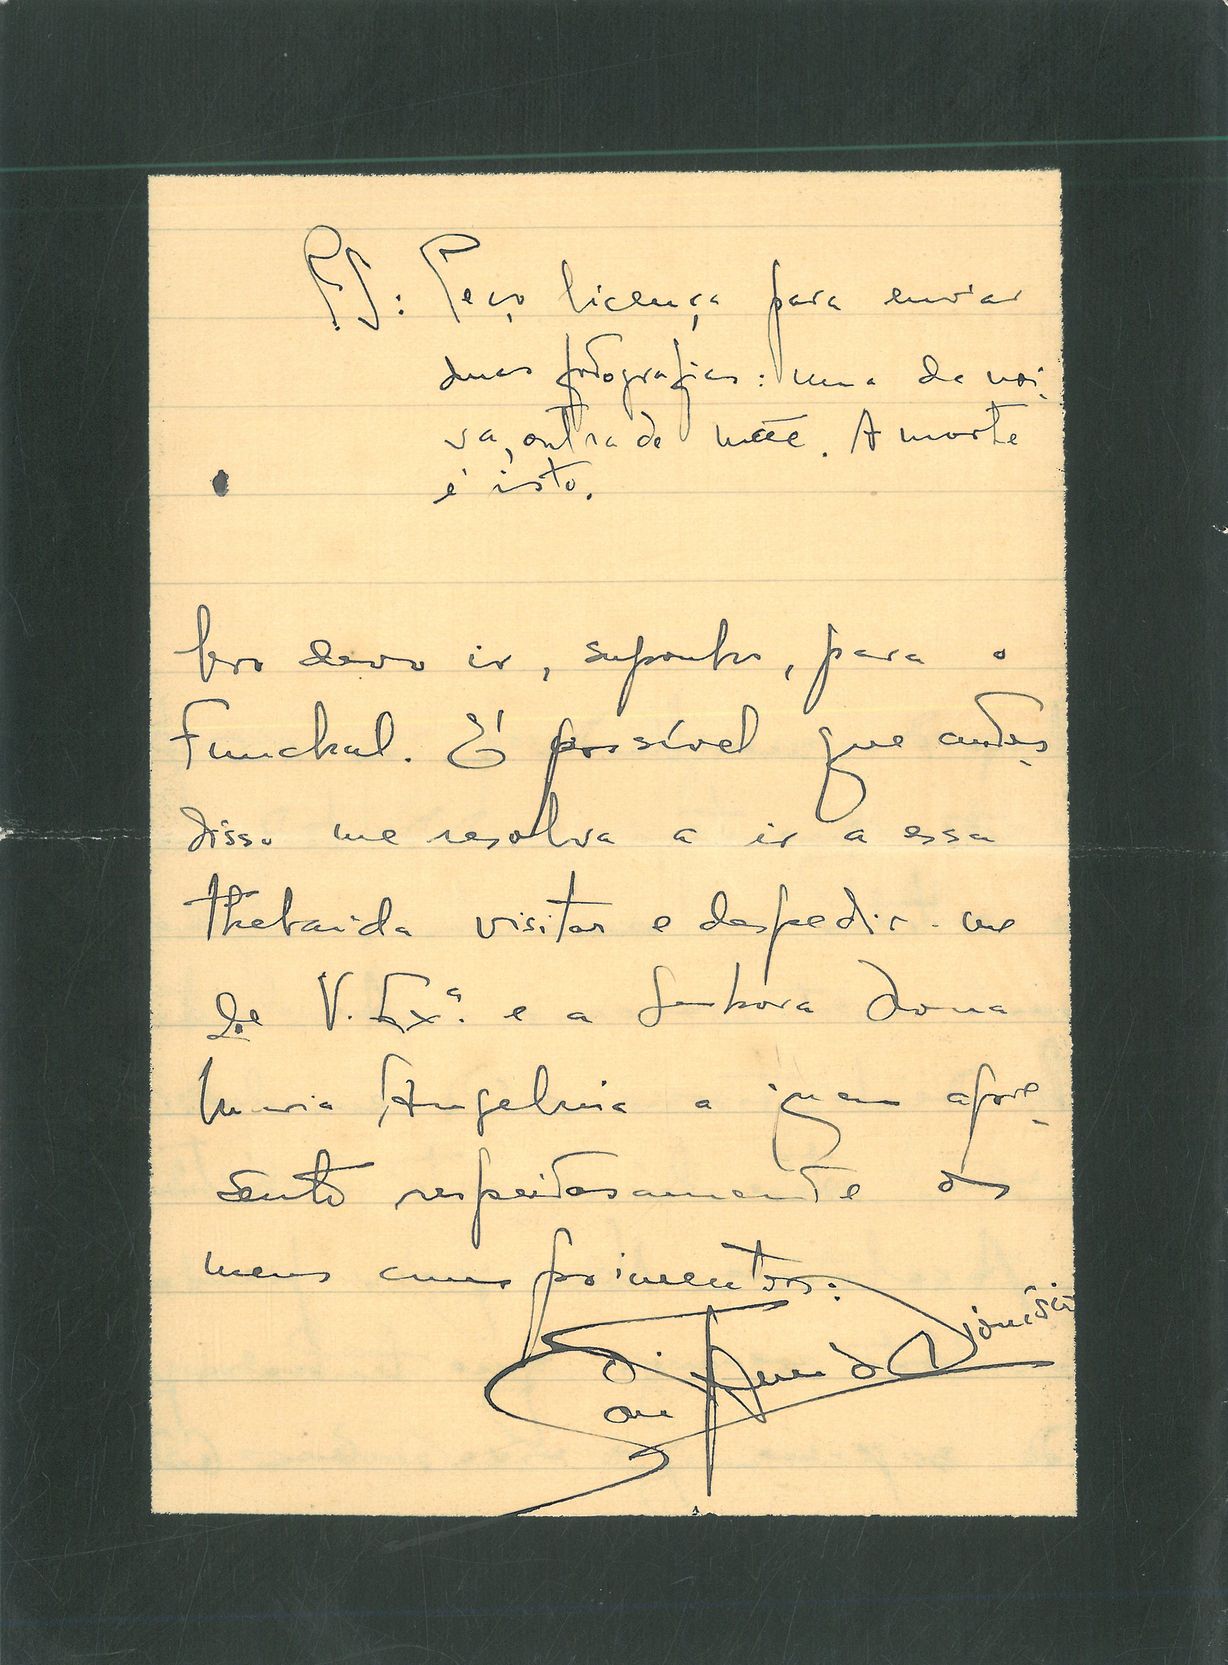 P.S: Peço licença para enviar
duas fotografias: uma de noi-
va, outra de mãe. A morte
é isto.
bro devo ir, suponho, para o
Funchal. É possível que antes
disso me resolva a ir a essa
thebaida visitar e despedir-me
de V. Exª. e a Senhora Dona
Maria Angelina a quem apre-
sento respeitosamente os
meus cumprimentos: